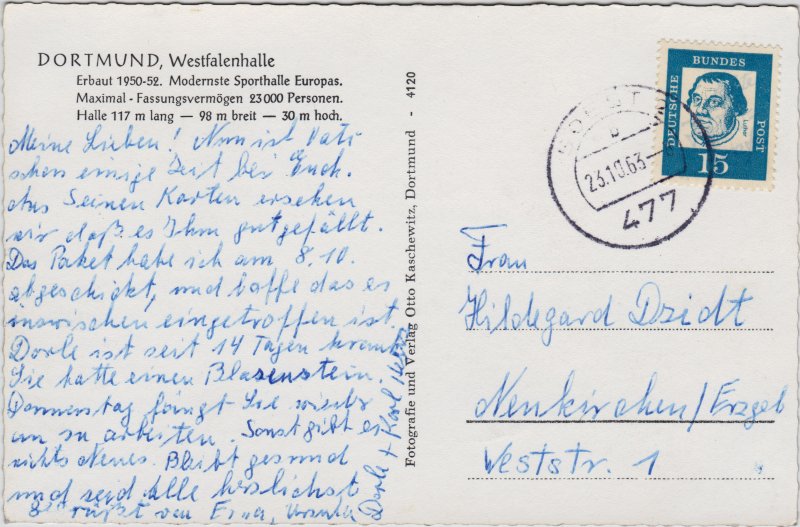 DORTMUND, Westfalenhalle
Erbaut 1950-52. Modernste Sporthalle Europas.
Maximal-Fassungsvermögen 23000 Personen.
Halle 117 m lang — 98 m breit — 30 m hoch.
Meine Lieben! Nun ist Vati
schon einige Zeit bei Euch.
Aus Seinen Karten ersehen
wir daß es Ihm gut gefällt.
Das Paket habe ich am 8.10.
abgeschickt, und hoffe das es
inzwischen eingetroffen ist.
Dorle ist seit 14 Tagen krank
Sie hatte einen Blasenstein.
Donnerstag fängt Sie wieder
an zu arbeiten. Sonst gibt es
nichts Neues. Bleibt gesund
und seid Alle herzlichst
grüßt von Erna, Ursula
Dorle + Karl Heinz
Fotografie und Verlag Otto Kaschewitz, Dortmund - 4120
DEUTSCHE
BUNDES
POST
Luther
15
SOEST
b
23.10.63
477
Frau
Hildegard Dzidt
Neukirchen/Erzgeb
Weststr. 1